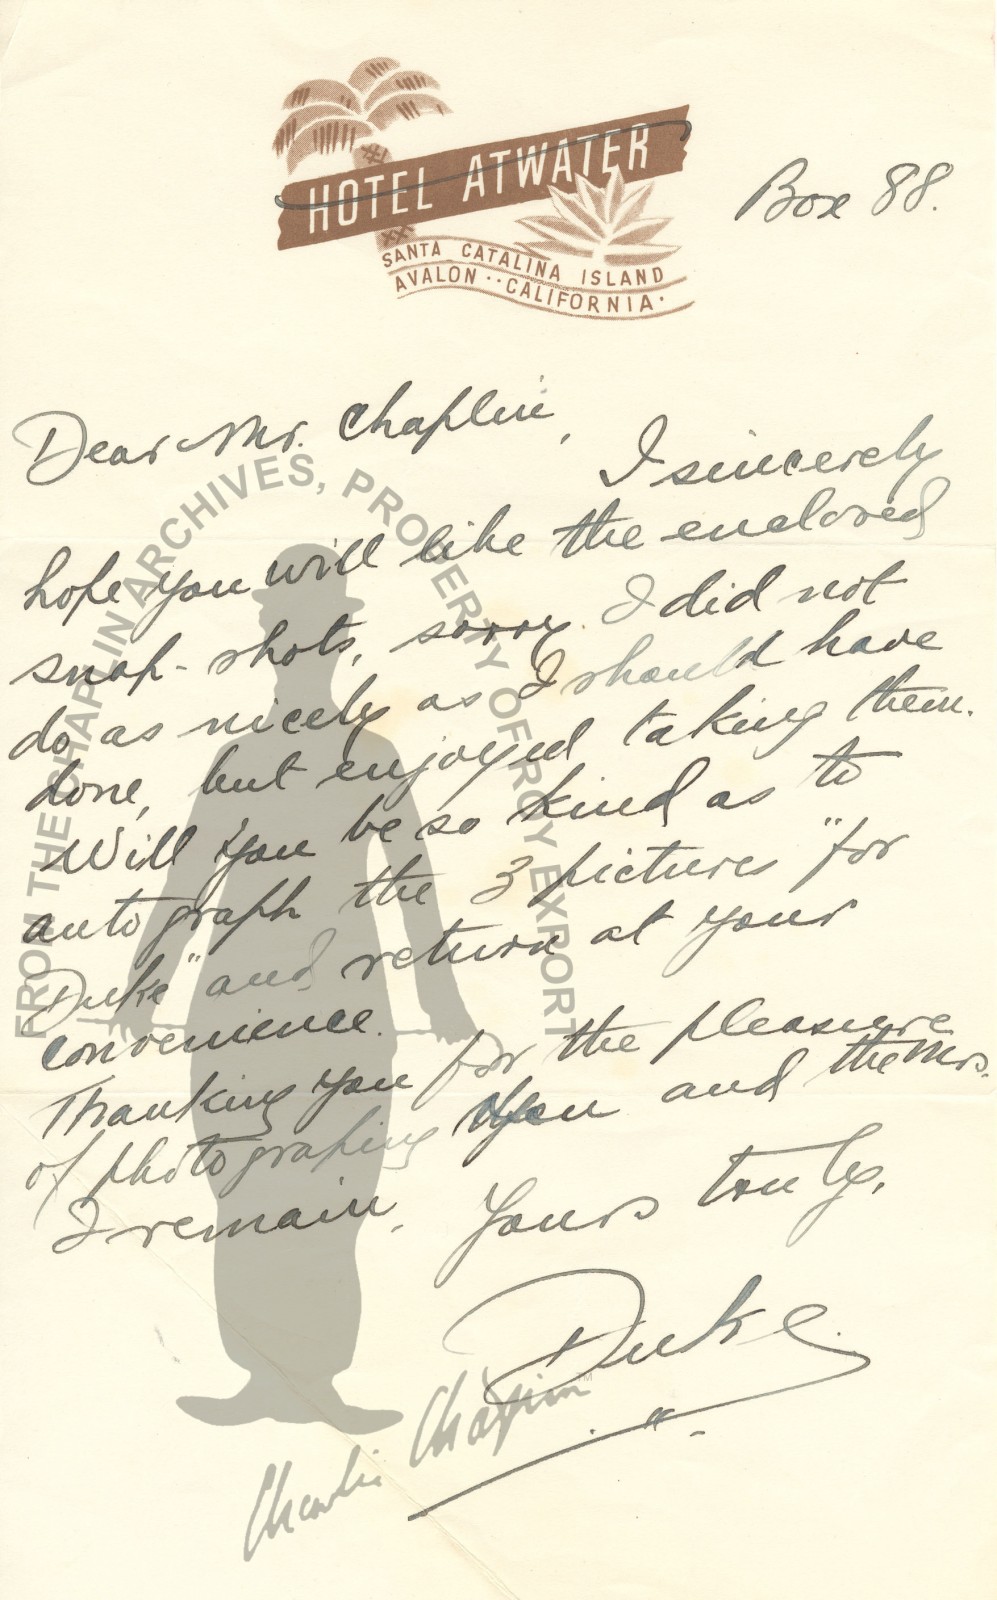 HOTEL ATWATER
SANTA CATALINA ISLAND
AVALON ·· CALIFORNIA ·
Box 88.
Dear Mr. Chaplin,
I sincerely
hope you will like the enclosed
snap-shots, sorry I did not
do as nicely as I should have
done, but enjoyed taking them.
Will you be so kind as to
autograph the 3 pictures "for
Duke" and return at your
convenience.
Thanking you for the pleasure
of photographing you and the Mrs.
I remain, Yours truly,
Duke
FROM THE CHAPLIN ARCHIVES, PROPERTY OF ROY EXPORT
Charlie Chaplin
TM